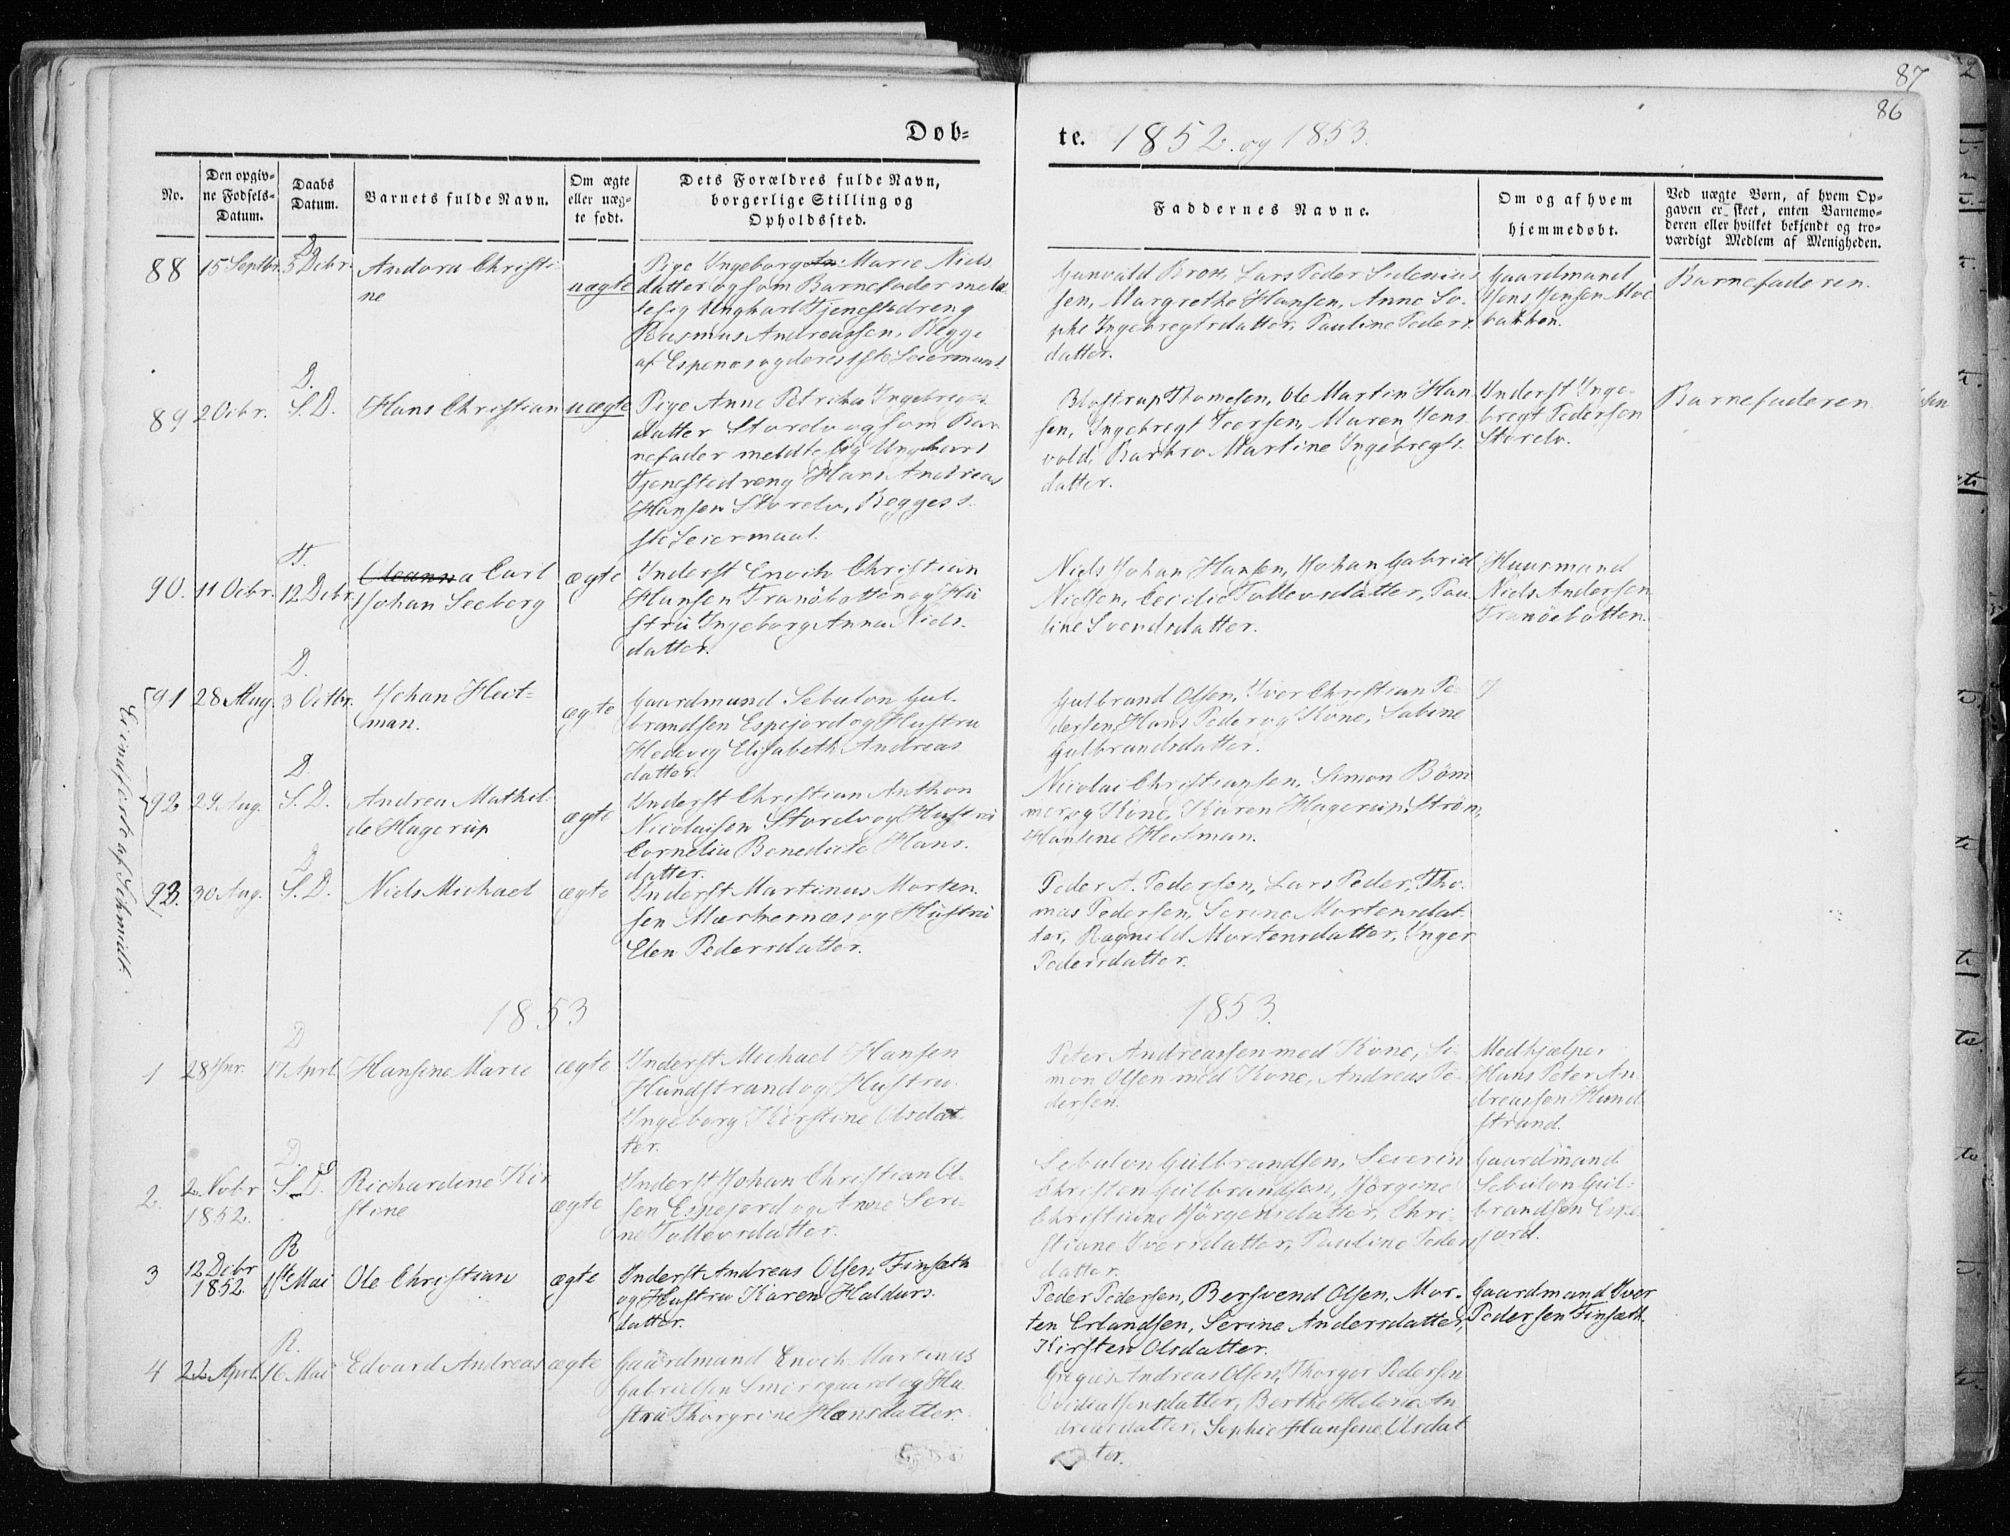 87
86
Døb-
te. 1852. og 1853.
No.
Den opgiv-
ne Fødsels-
Datum.
Daabs
Datum.
Barnets fulde Navn.
Om ægte
eller uæg-
te født.
Dets Forældres fulde Navn,
borgerlige Stilling og
Opholdssted.
Faddernes Navne.
Om og af hvem
hjemmedøbt.
Ved uægte Børn, af hvem Op-
gaven er skeet, enten Barnemo-
deren eller hvilket bekjendt og tro-
værdigt Medlem af Menigheden.
88
15 Septbr.
D
5 Debr
Andora Christi
ne
uægte
Pige Ingeborg Marie Niels
datter og som Barnefader meld
te sig Ungkarl Tjenestedreng
Rasmus Andreassen, Begge
af Espenes og deres 1ste Leiermaal
Gunvald Brox, Lars Peder Sidenius
sen, Margrethe Hansen, Anne So-
phie Ingebregtsdatter, Pauline Peders
datter.
Gaardmand
Jens Jensen Moe
bakken.
Barnefaderen.
89
2 Octbr.
D.
S. D.
Hans Christian
uægte
Pige Anne Petrikka Ingebregts
datter Storelv og som Bar
nefader meldte sig Ungkarl
Tjenestedreng Hans Andreas
Hansen Storelv, Begges 1
ste Leiermaal.
Thomesen, Ole Martin Han
sen, Ingebregt Peersen, Maren Jens
vold, Barbro Martine Ingebregts
datter.
Inderst Inge-
bregt Pedersen
Storelv.
Barnefaderen
90.
11 Octbr.
H.
12 Debr.
Carl
Johan Seeberg
ægte
Inderst Enoch Christian
Hansen Tranöbotten og Hu
stru Ingeborg Anna Niels-
datter.
Niels Johan Hansen, Johan Gabriel
Nielsen, Cecilie Tollevsdatter, Pau
line Svendsdatter.
Huusmand
Niels Andersen
Tranöebotten.
Er indførte af Schmidt.
91
28 Aug.
D.
3 Octbr.
Johan Heit-
man.
ægte
Gaardmand Sebulon Gul-
brandsen Espejord og Hustru
Hedevig Elisabeth Andreas
datter.
Gulbrand Olsen, Iver Christian Pe-
dersen, Hans Peder og Kone, Sabine
Gulbrandsdatter.
92
29 Aug.
D
S. D.
Andrea Mathil-
de Hagerup
ægte
Inderst Christian Anthon
Nicolaisen Storelv og Hustru
Cornelia Benedicte Hans-
datter.
Nicolai Christiansen, Simon Böm
mer og Kone, Karen Hagerup Ström,
Hansine Heitman.
93.
30 Aug.
D
S. D.
Niels Michael
ægte
Inderst Martinus Morten-
sen Mærkernæs og Hustru
Elen Pedersdatter.
Peder A. Pedersen, Lars Peder, Tho-
mas Pedersen, Serine Mortensdat-
ter, Ragnild Mortensdatter, Inger
Pedersdatter.
1853
1853.
1
28 Jnr.
D
17 Aprl
Hansine Marie
ægte
Inderst Michael Hansen
Hundstrand og Hustru
Ingeborg Kirstine Olsdat
ter.
Peter Andreassen med Kone, Si-
mon Olsen med Kone, Andreas Pe-
dersen.
Medhjælper
Hans Peter An
dreassen Hund-
strand.
2.
2. Novbr
1852.
D.
S. D.
Richardine Kir
stine
ægte
Inderst Johan Christian Ol-
sen Espejord og Anne Seri-
ne Tollevsdatter.
Sebulon Gulbrandsen, Severin
Christen Gulbrandsen, Jörgine
Christiane Jörgensdatter, Chri-
stiane Iversdatter, Pauline Peders
datter.
Gaardmand
Sebulon Gul-
brandsen Espe
jord.
3
12 Debr
1852.
R
1ste Mai
Ole Christian
ægte
Inderst Andreas Olsen Finsæth
og Hustru Karen Haldurs-
datter.
Peder Pedersen, Bersvend Olsen, Mor-
ten Erlandsen, Serine Andersdatter,
Kirsten Olsdatter.
Gaardmand Iver
Pedersen Finsæth.
4
22 Aprl.
R.
16 Mai
Edvard Andreas
ægte
Gaardmand Enoch Martinus
Gabrielsen Smörsgaard og Hu
stru Thorgrine Hansdatter.
Andreas Olsen, Thorger Pedersen
Berthe Helene An
dreasdatter, Sophie Hansine Olsdat
ter.